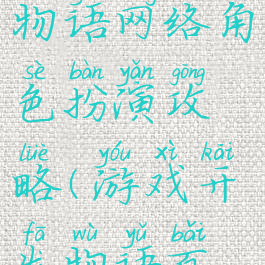 物语网络角
sè bàn yǎn gōng
色扮演攻
lüè yóu xì kāi
略(游戏开
fā wù yǔ bǎi
物语